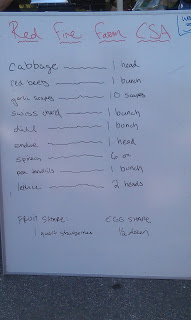 Red Fire Farm CSA
cabbage 1 head
red beets 1 bunch
garlic scapes 10 scapes
swiss chard 1 bunch
dill 1 bunch
endive 1 head
spinach 6 oz
pea tendrils 1 bunch
lettuce 2 heads
FRUIT SHARE EGG SHARE
1 quart strawberries 1/2 dozen